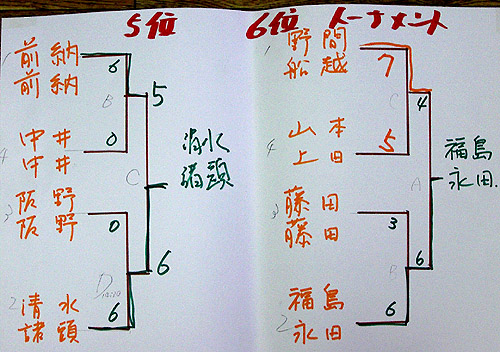 5位 6位 トーナメント
1 前納
前納
6
B
5
4 中井
中井
0
清水
諸頭
C
3 阪野
阪野
0
6
D
2 清水
諸頭
6
1 野間
船越
7
C
4
4 山本
上田
5
福島
永田
A
3 藤田
藤田
3
6
2 福島
永田
6